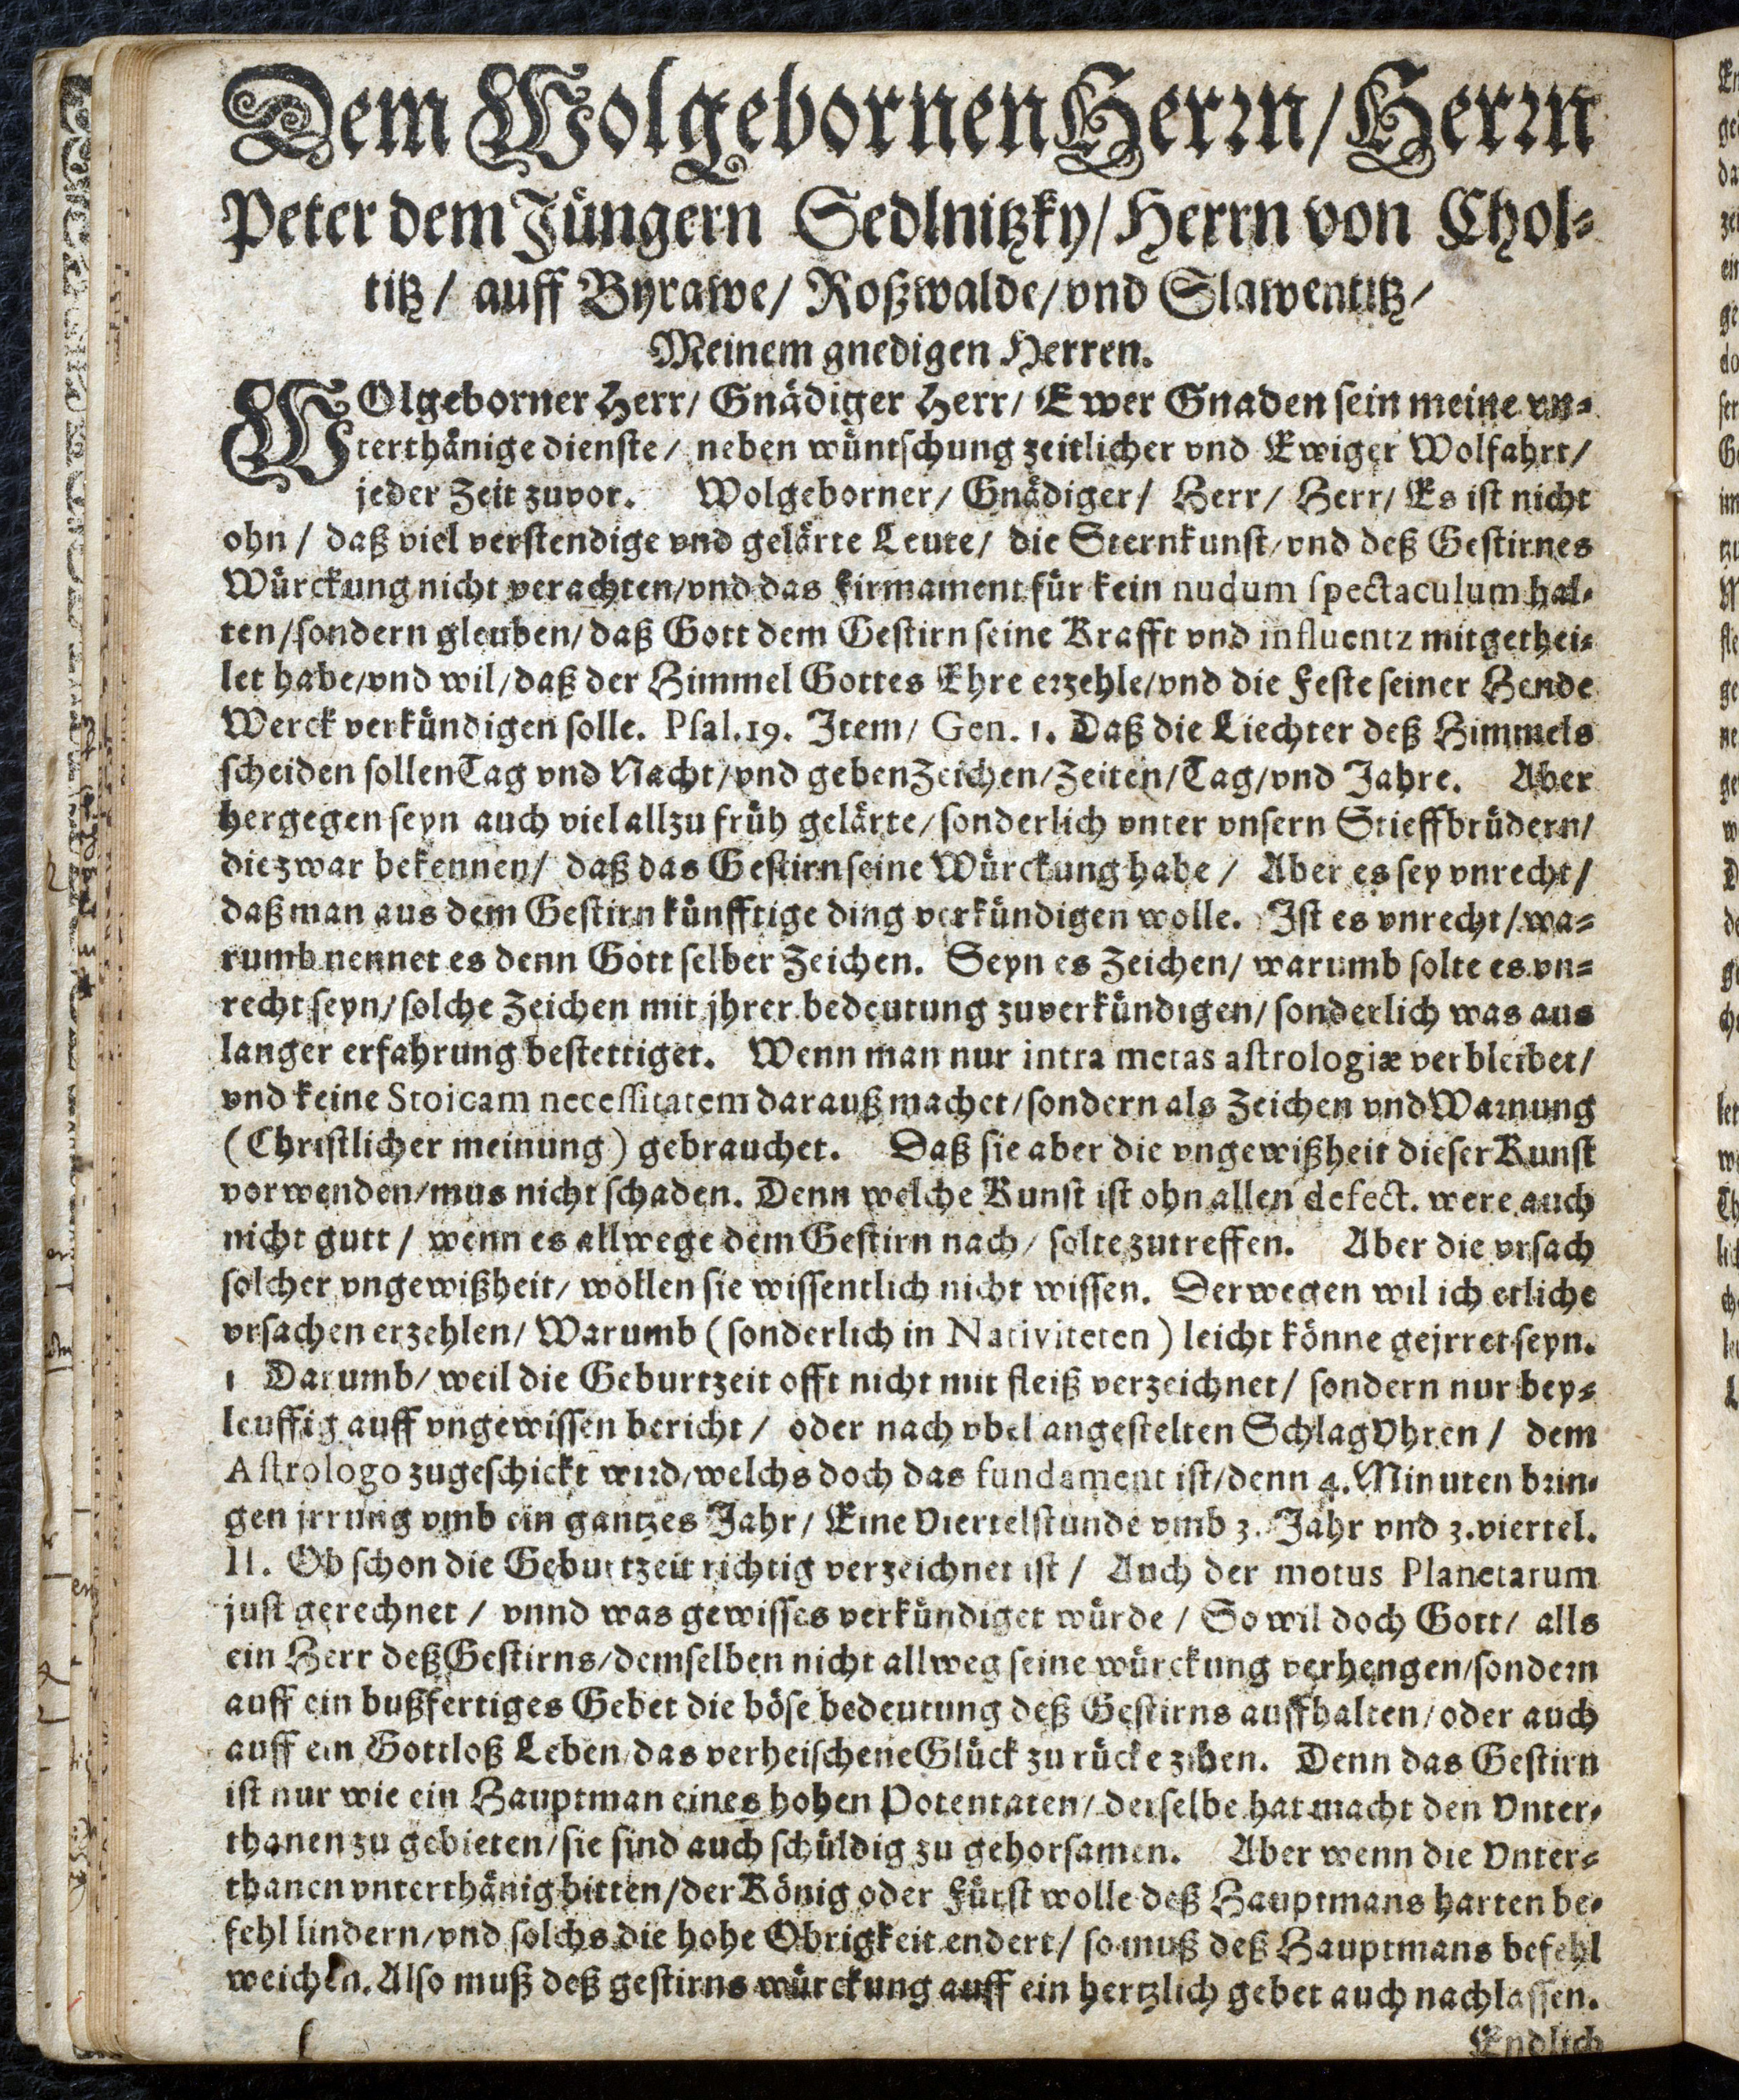 Dem Wolgebornen Herrn/ Herrn
Peter dem Jüngern Sedlnitzky/ Herrn von Chol-
titz/ auff Byrawe/ Roßwalde/ vnd Slawentitz/
Meinem gnedigen Herren.
WOlgeborner Herr/ Gnädiger Herr/ Ewer Gnaden sein meine vn-
terthänige dienste/ neben wüntschung zeitlicher vnd Ewiger Wolfahrt/
jeder Zeit zuvor. Wolgeborner/ Gnädiger/ Herr/ Herr/ Es ist nicht
ohn/ daß viel verstendige vnd gelärte Leute/ die Sternkunst/ vnd deß Gestirnes
Würckung nicht verachten/ vnd das Firmament für kein nudum spectaculum hal-
ten/ sondern gleuben/ daß Gott dem Gestirn seine Krafft vnd influentz mitgethei-
let habe/ vnd wil/ daß der Himmel Gottes Ehre erzehle/ vnd die Feste seiner Hende
Werck verkündigen solle. Psal. 19. Item/ Gen. 1. Daß die Liechter deß Himmels
scheiden sollen Tag vnd Nacht/ vnd geben Zeichen/ Zeiten/ Tag/ vnd Jahre. Aber
hergegen seyn auch viel allzu früh gelärte/ sonderlich vnter vnsern Stieffbrüdern/
die zwar bekennen/ daß das Gestirn seine Würckung habe/ Aber es sey vnrecht/
daß man aus dem Gestirn künfftige ding verkündigen wolle. Ist es vnrecht/ wa-
rumb nennet es denn Gott selber Zeichen. Seyn es Zeichen/ warumb solte es vn-
recht seyn/ solche Zeichen mit jhrer bedeutung zuverkündigen/ sonderlich was aus
langer erfahrung bestettiget. Wenn man nur intra metas astrologiæ verbleibet/
vnd keine Stoicam necessitatem darauß machet/ sondern als Zeichen vnd Warnung
(Christlicher meinung) gebrauchet. Daß sie aber die vngewißheit dieser Kunst
vorwenden/ mus nicht schaden. Denn welche Kunst ist ohn allen defect. were auch
nicht gutt/ wenn es allwege dem Gestirn nach/ solte zutreffen. Aber die vrsach
solcher vngewißheit/ wollen sie wissentlich nicht wissen. Derwegen wil ich etliche
vrsachen erzehlen/ Warumb (sonderlich in Nativiteten) leicht könne gejrret seyn.
1 Darumb/ weil die Geburtzeit offt nicht mit fleiß verzeichnet/ sondern nur bey-
leuffig auff vngewissen bericht/ oder nach vbel angestelten SchlagVhren/ dem
Astrologo zugeschickt wird/ welchs doch das fundament ist/ denn 4. Minuten brin-
gen jrrung vmb ein gantzes Jahr/ Eine Viertelstunde vmb 3. Jahr vnd 3. viertel.
II. Ob schon die Geburtzeit richtig verzeichnet ist/ Auch der motus Planetarum
just gerechnet/ vnnd was gewisses verkündiget würde/ So wil doch Gott/ alls
ein Herr deß Gestirns/ demselben nicht allweg seine würckung verhengen/ sondern
auff ein bußfertiges Gebet die böse bedeutung deß Gestirns auffhalten/ oder auch
auff ein Gottloß Leben/ das verheischene Glück zu rücke zihen. Denn das Gestirn
ist nur wie ein Hauptman eines hohen Potentaten/ derselbe hat macht den Vnter-
thanen zu gebieten/ sie sind auch schüldig zu gehorsamen. Aber wenn die Vnter-
thanen vnterthänig bitten/ der König oder Fürst wolle deß Hauptmans harten be-
fehl lindern/ vnd solchs die hohe Obrigkeit endert/ so muß deß Hauptmans befehl
weichen. Also muß deß gestirns würckung auff ein hertzlich gebet auch nachlassen.
Endlich